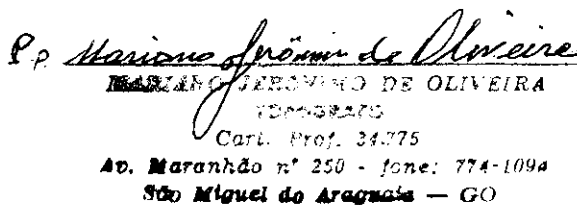 P.p. Mariano Jerônimo de Oliveira
MARIANO JERONIMO DE OLIVEIRA
TOPOGRAFO
Cart. Prof. 34.775
Av. Maranhão nº 250 - fone: 774-1094
São Miguel do Araguaia — GO